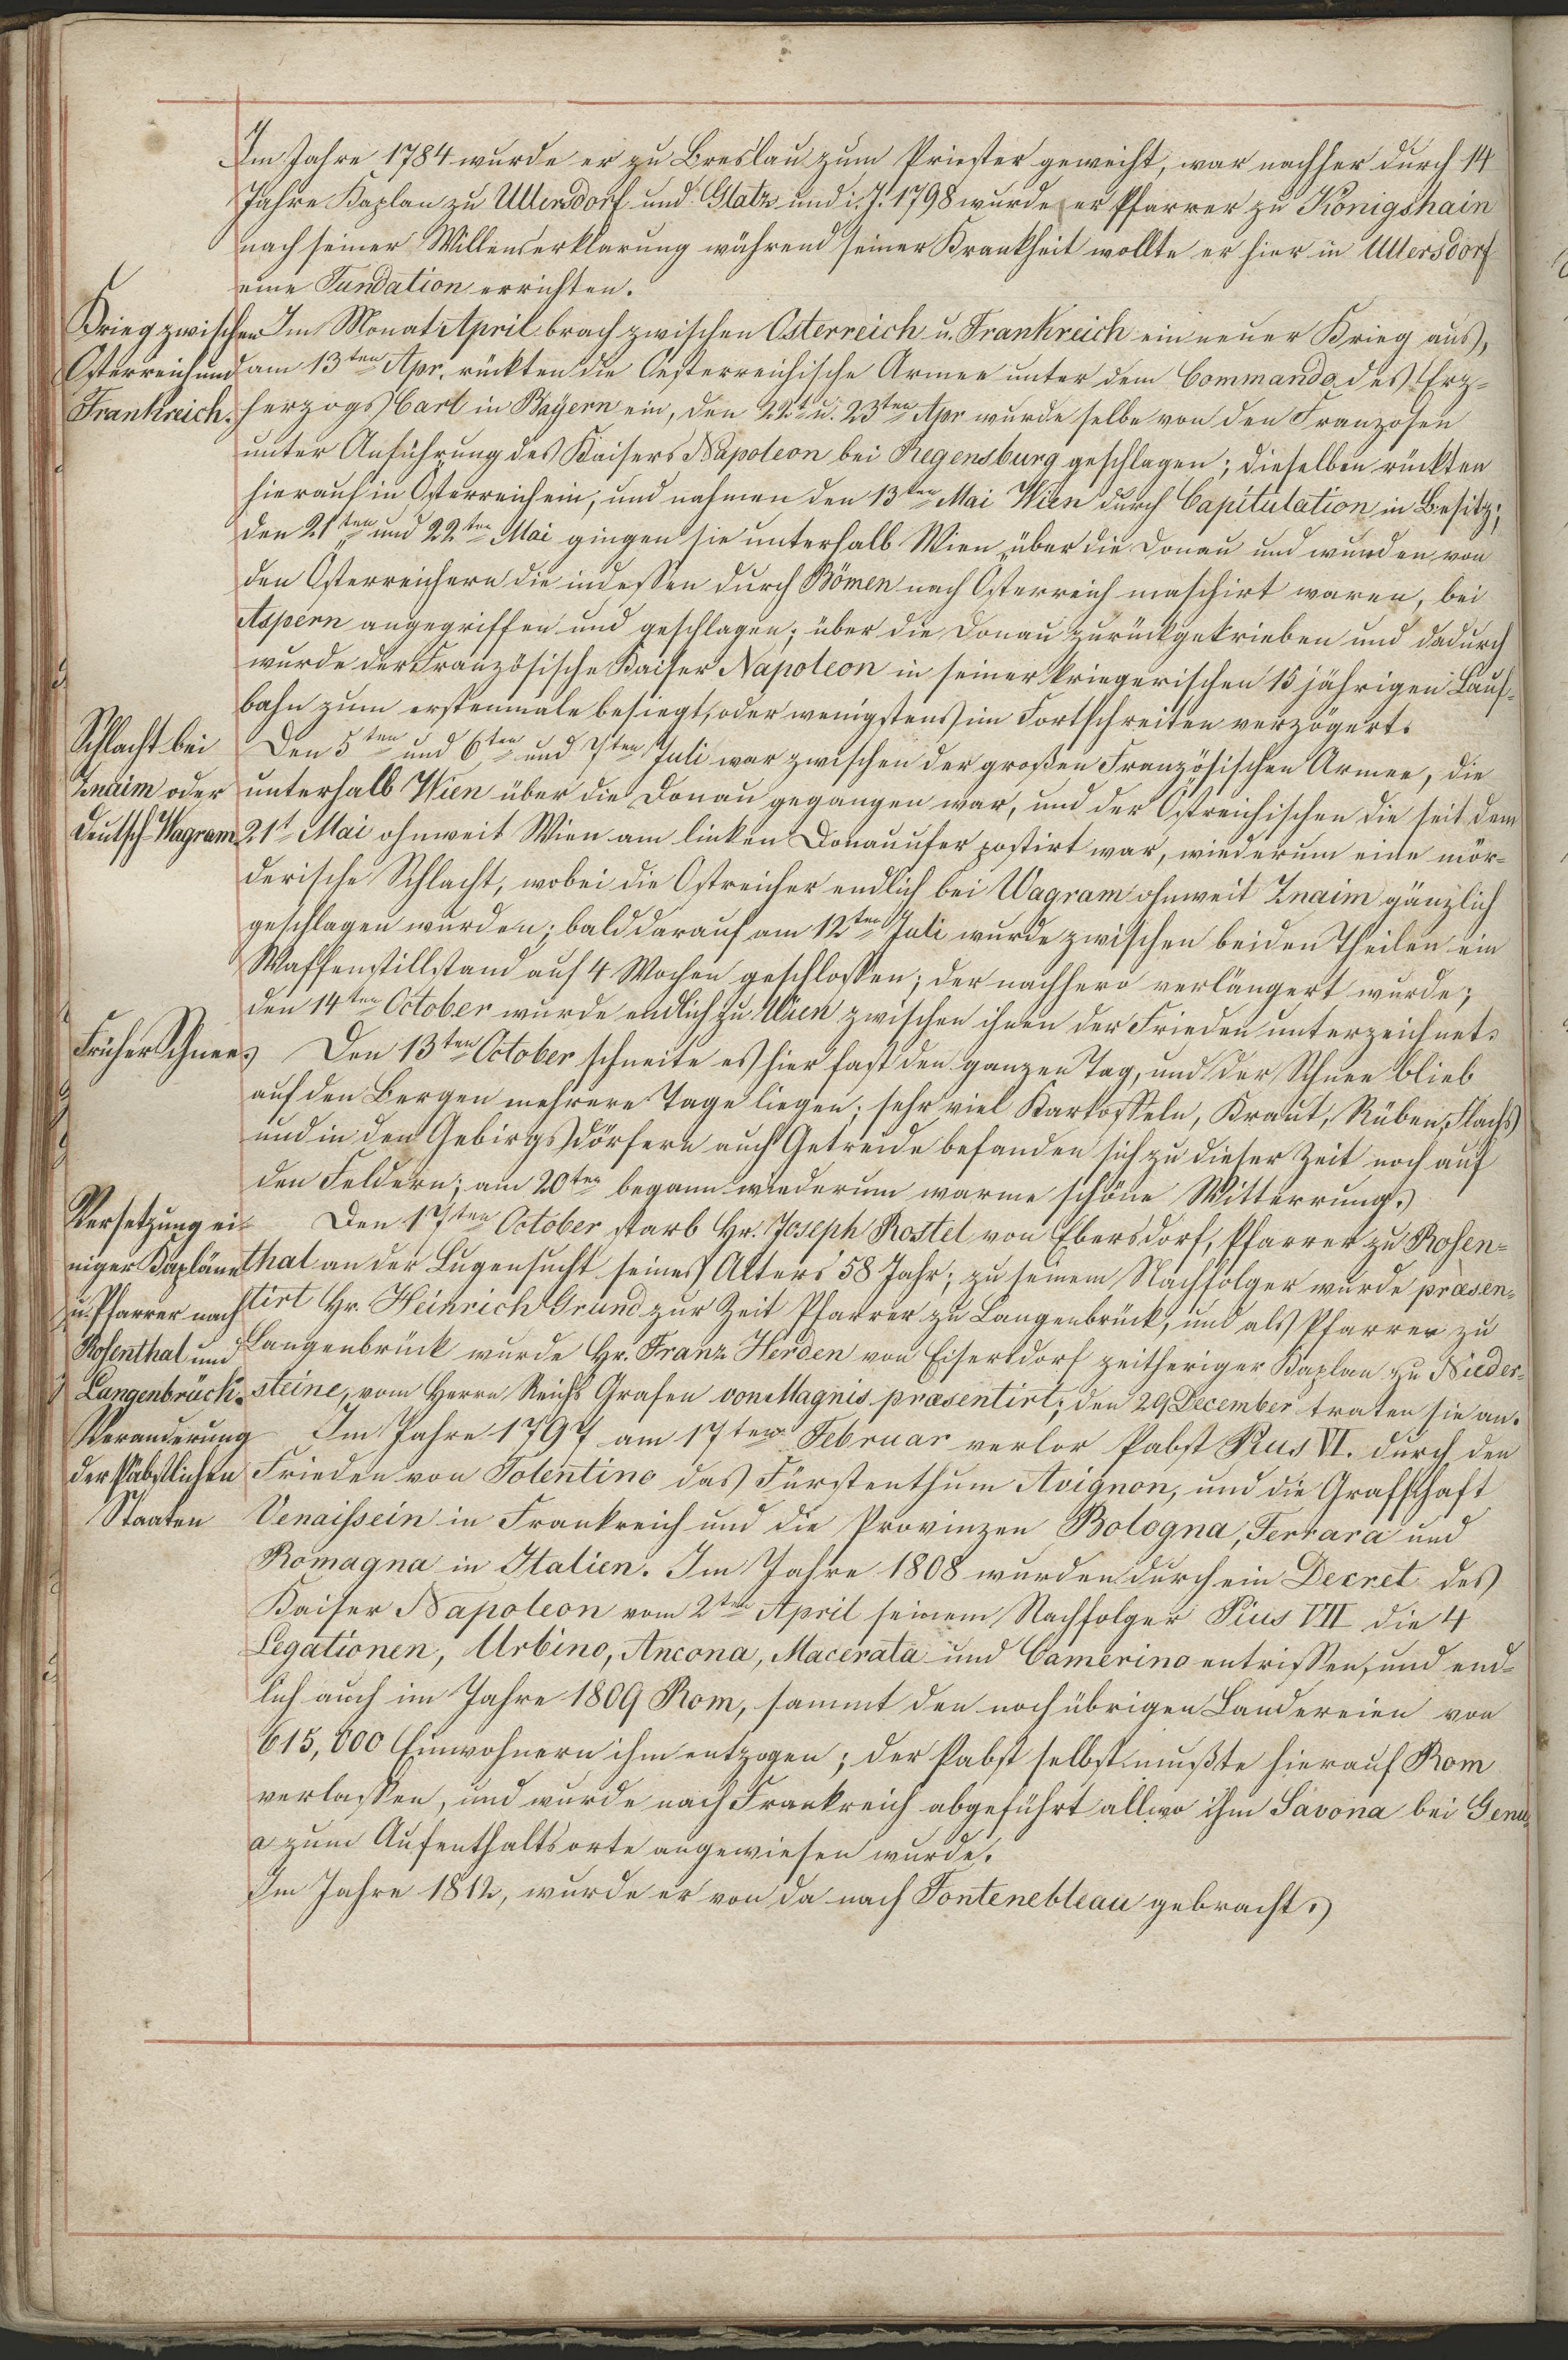 Im Jahre 1784 wurde er zu Breslau zum Priester geweiht, war nachher durch 14
Jahre Kaplan zu Ullersdorf und Glatz und i. J. 1798 wurde er Pfarrer zu Königshain
nach seiner Willenserklarung während seiner Krankheit wollte er hier in Ullersdorf
eine Fundation errichten.
Krieg zwischen
Österreich und
Frankreich.
Im Monat April brach zwischen Österreich u. Frankreich ein neuer Krieg aus,
am 13ten Apr. rückten die Oesterreichische Armee unter dem Commando des Erz=
herzogs Carl in Bayern ein, den 22t u. 23ten Apr wurde selbe von den Franzosen
unter Anführung des Kaisers Napoleon bei Regensburg geschlagen; dieselben rückten
hierauf in Österreich ein, und nahmen den 13ten Mai Wien durch Capitulation in Besitz;
den 21ten und 22ten Mai gingen sie unterhalb Wien über die Donau und wurden von
den Österreichern die indessen durch Bömen nach Österreich maschirt waren, bei
Aspern angegriffen und geschlagen; über die Donau zurückgetrieben und dadurch
wurde der Französische Kaiser Napoleon in seiner kriegerischen 15 jährigen Lauf=
bahn zum erstenmale besiegt, oder wenigstens im Fortschreiten verzögert.
Schlacht bei
Znaim oder
Deutsch-Wagram.
Den 5ten und 6ten und 7ten Juli war zwischen der großen Französischen Armee, die
unterhalb Wien über die Donau gegangen war, und der Östreichischen die seit dem
21t Mai ohnweit Wien am linken Donauufer postirt war, wiederum eine mör=
derische Schlacht, wobei die Ostreicher endlich bei Wagram ohnweit Znaim gänzlich
geschlagen wurden; bald darauf am 12ten Juli wurde zwischen beiden Theilen ein
Waffenstillstand auf 4 Wochen geschlossen; der nachhero verlängert wurde;
den 14ten October wurde endlich zu Wien zwischen ihnen der Frieden unterzeichnet.
Früher Schnee.
Den 13ten October schneite es hier fast den ganzen Tag, und der Schnee blieb
auf den Bergen mehrere Tage liegen; sehr viel Kartoffeln, Kraut, Rüben, Flachs
und in den Gebirgsdörfern auch Getreide befanden sich zu dieser Zeit noch auf
den Feldern; am 20ten begann wiederum warme schöne Witterrung.
Versetzung ei=
niger Kapläne
u. Pfarrer nach
Rosenthal und
Langenbrück.
Den 17ten October starb Hr. Joseph Rostel von Ebersdorf, Pfarrer zu Rosen=
thal an der Lugensucht seines Alters 58 Jahr; zu seinem Nachfolger wurde præsen=
tirt Hr. Heinrich Grund zur Zeit Pfarrer zu Langenbrück, und als Pfarrer zu
Langenbrück wurde Hr. Franz Herden von Eisersdorf zeitheriger Kaplan zu Nieder=
steine, vom Herrn Reichs Grafen von Magnis præsentirt; den 29 December traten sie an.
Veranderung
der Pabstlichen
Staaten
Im Jahre 1797 am 17ten Februar verlor Pabst Pius VI. durch den
Frieden von Tolentino das Fürstenthum Avignon, und die Graffschaft
Venaissein in Frankreich und die Provinzen Bologna, Ferrara und
Romagna in Italien. Im Jahre 1808 wurden durch ein Decret des
Kaiser Napoleon vom 2ten April seinem Nachfolger Pius VII die 4
Legationen, Urbino, Ancona, Macerata und Camerino entrissen, und end=
lich auch im Jahre 1809 Rom, sammt den noch übrigen Landereien von
615,000 Einwohnern ihm entzogen; der Pabst selbst mußte hierauf Rom
verlassen, und wurde nach Frankreich abgeführt allwo ihm Savona bei Genu=
a zum Aufenthaltsorte angewiesen wurde.
Im Jahre 1812, wurde er von da nach Fontenebleau gebracht.